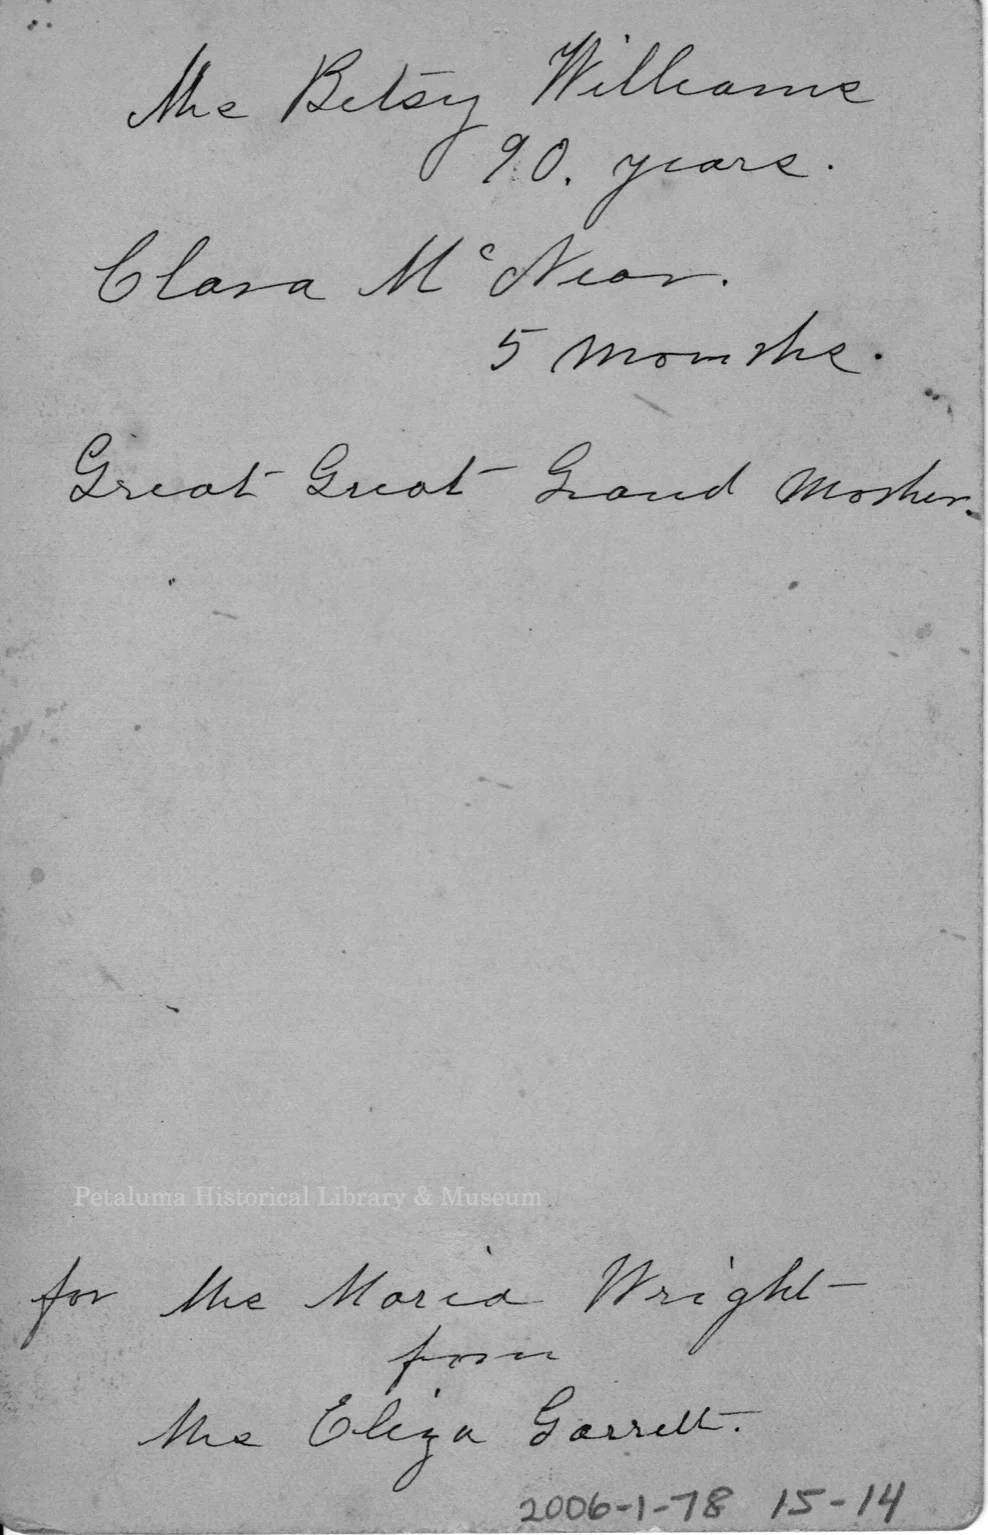 Mrs Betsy Williams
90. years.
Clara McNear.
5 months.
Great Great Grand Mother.
Petaluma Historical Library & Museum
for Mrs Maria Wright
from
Mrs Eliza Garrett.
2006-1-78 15-14